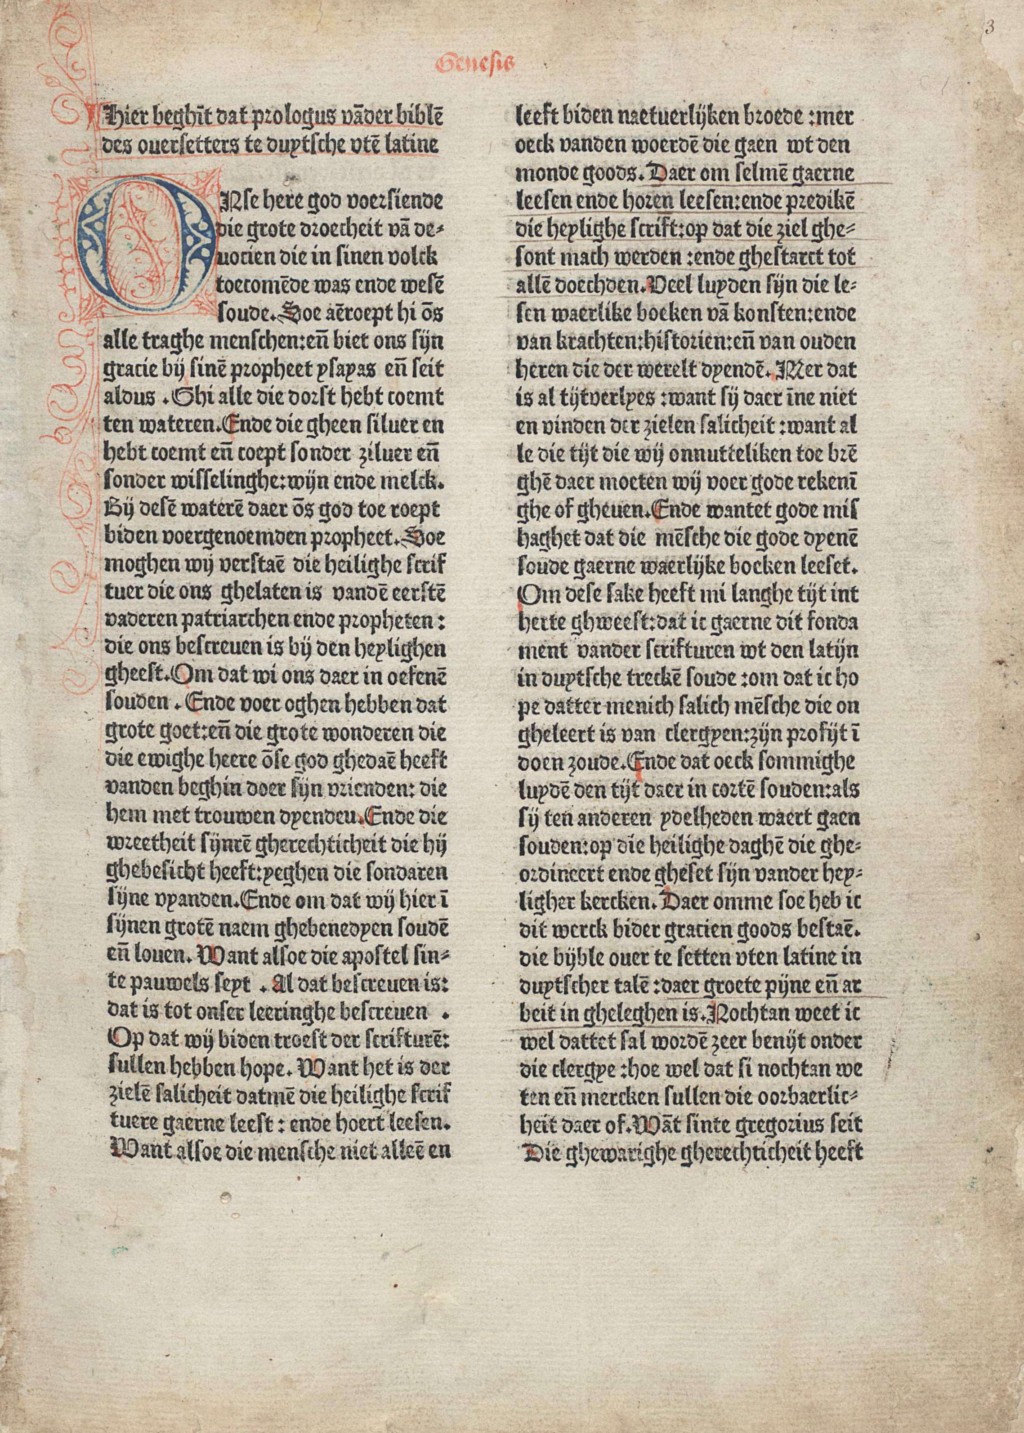 3
Genesis
Hier beghīt dat prologus vāder biblē
des ouersetters te duytsche vtē latine
ONse here god voersiende
die grote droecheit vā de⸗
uocien die in sinen volck
toecomēde was ende wesē
soude. Soe aēroept hi ōs
alle traghe menschen: en̄ biet ons sijn
gracie bij sinē propheet ysayas en̄ seit
aldus . Ghi alle die dorst hebt coemt
ten wateren. Ende die gheen siluer en
hebt coemt en̄ coept sonder ziluer en̄
sonder wisselinghe: wijn ende melck.
Bij desē waterē daer ōs god toe roept
biden voergenoemden propheet. Soe
moghen wij verstaē die heilighe scrif
tuer die ons ghelaten is vandē eerstē
vaderen patriarchen ende propheten:
die ons bescreuen is bij den heylighen
gheest. Om dat wi ons daer in oefenē
souden . Ende voer oghen hebben dat
grote goet: en̄ die grote wonderen die
die ewighe heere ōse god ghedaē heeft
vanden beghin doer sijn vrienden: die
hem met trouwen dyenden. Ende die
wreetheit sijnrē gherechticheit die hij
ghebesicht heeft: yeghen die sondaren
sijne vyanden. Ende om dat wij hier ī
sijnen grotē naem ghebenedyen soudē
en̄ louen. Want alsoe die apostel sin⸗
te pauwels seyt . Al dat bescreuen is:
dat is tot onser leeringhe bescreuen .
Op dat wij biden troest der scrifturē:
sullen hebben hope. Want het is der
zielē salicheit datmē die heilighe scrif
tuere gaerne leest : ende hoert leesen.
Want alsoe die mensche niet alleē en
leeft biden naetuerlijken broede : mer
oeck vanden woerdē die gaen wt den
monde goods. Daer om selmē gaerne
leesen ende horen leesen: ende predikē
die heylighe scrift: op dat die ziel ghe⸗
sont mach werden : ende ghestarct tot
allē doechden. Veel luyden sijn die le⸗
sen waerlike boeken vā konsten: ende
van krachten: historien: en̄ van ouden
heren die der werelt dyendē. Mer dat
is al tijtverlyes : want sij daer ine niet
en vinden der zielen salicheit : want al
le die tijt die wij onnutteliken toe brē
ghē daer moeten wij voer gode rekenī
ghe of gheuen. Ende wantet gode mis
haghet dat die mēsche die gode dyenē
soude gaerne waerlijke boeken leeset.
Om dese sake heeft mi langhe tijt int
herte ghweest: dat ic gaerne dit fonda
ment vander scrifturen wt den latijn
in duytsche treckē soude : om dat ic ho
pe datter menich salich mēsche die on
gheleert is van clergyen: zijn profijt ī
doen zoude. Ende dat oeck sommighe
luydē den tijt daer in cortē souden: als
sij ten anderen ydelheden waert gaen
souden: op die heilighe daghē die ghe⸗
ordineert ende gheset sijn vander hey⸗
ligher kercken. Daer omme soe heb ic
dit werck bider gracien goods bestaē.
die bijble ouer te setten vten latine in
duytscher talē : daer groete pijne en̄ ar
beit in gheleghen is. Nochtan weet ic
wel dattet sal wordē zeer benijt onder
die clergye : hoe wel dat si nochtan we
ten en̄ mercken sullen die oorbaerlic⸗
heit daer of. Wāt sinte gregorius seit
Die ghewarighe gherechticheit heeft